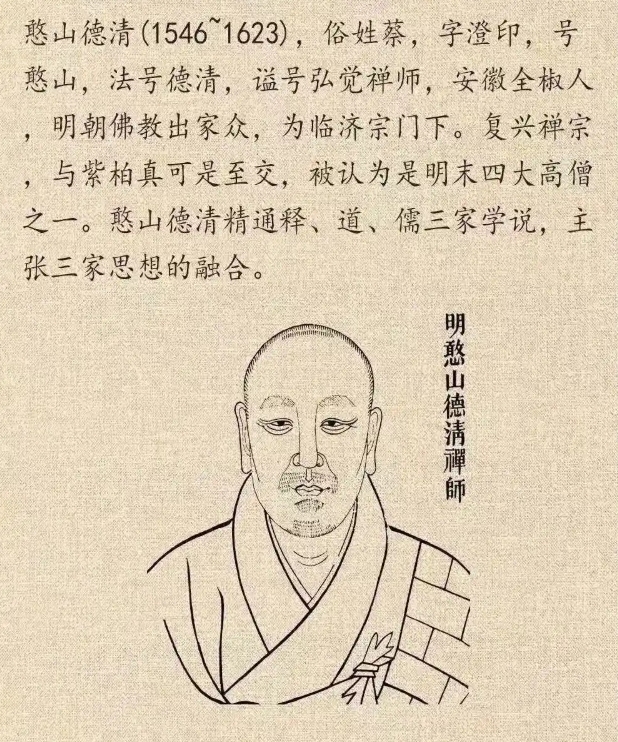 憨山德清(1546~1623)，俗姓蔡，字澄印，号
憨山，法号德清，谥号弘觉禅师，安徽全椒人
，明朝佛教出家众，为临济宗门下。复兴禅宗
，与紫柏真可是至交，被认为是明末四大高僧
之一。憨山德清精通释、道、儒三家学说，主
张三家思想的融合。
明憨山德清禪師